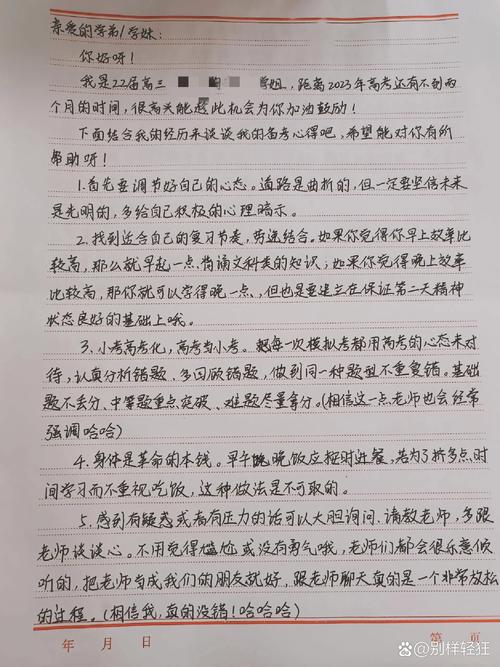 亲爱的学弟/学妹：
你好呀！
我是22届高三 的 学姐，距离2023年高考还有不到两
个月的时间，很高兴能趁此机会为你加油鼓励！
下面结合我的经历来谈谈我的备考心得吧，希望能对你有所
帮助呀！
1.首先要调节好自己的心态。道路是曲折的，但一定要坚信未来
是光明的，多给自己积极的心理暗示。
2.找到适合自己的复习节奏，劳逸结合。如果你觉得你早上效率比
较高，那么就早起一点背诵文科类的知识；如果你觉得晚上效率
比较高，那你就可以学得晚一点，但也是要建立在保证第二天精神
状态良好的基础上哦。
3.小考高考化，高考当小考。把每一次模拟考都用高考的心态来对
待，认真分析错题、多回顾错题，做到同一种题型不重复错。基础
题不丢分、中等题重点突破、难题尽量拿分。(相信这一点老师也会经常
强调哈哈)
4.身体是革命的本钱。早午晚饭应按时进餐，若为了挤多点时
间学习而不重视吃饭，这种做法是不可取的。
5.感到有疑惑或者有压力的话可以大胆询问、请教老师，多跟
老师谈谈心。不用觉得尴尬或没有勇气哦，老师们都会很乐意倾
听的，把老师当成我们的朋友就好，跟老师聊天真的是一个非常放松
的过程。(相信我，真的没错！哈哈哈)
年 月 日 第 页
@别样轻狂